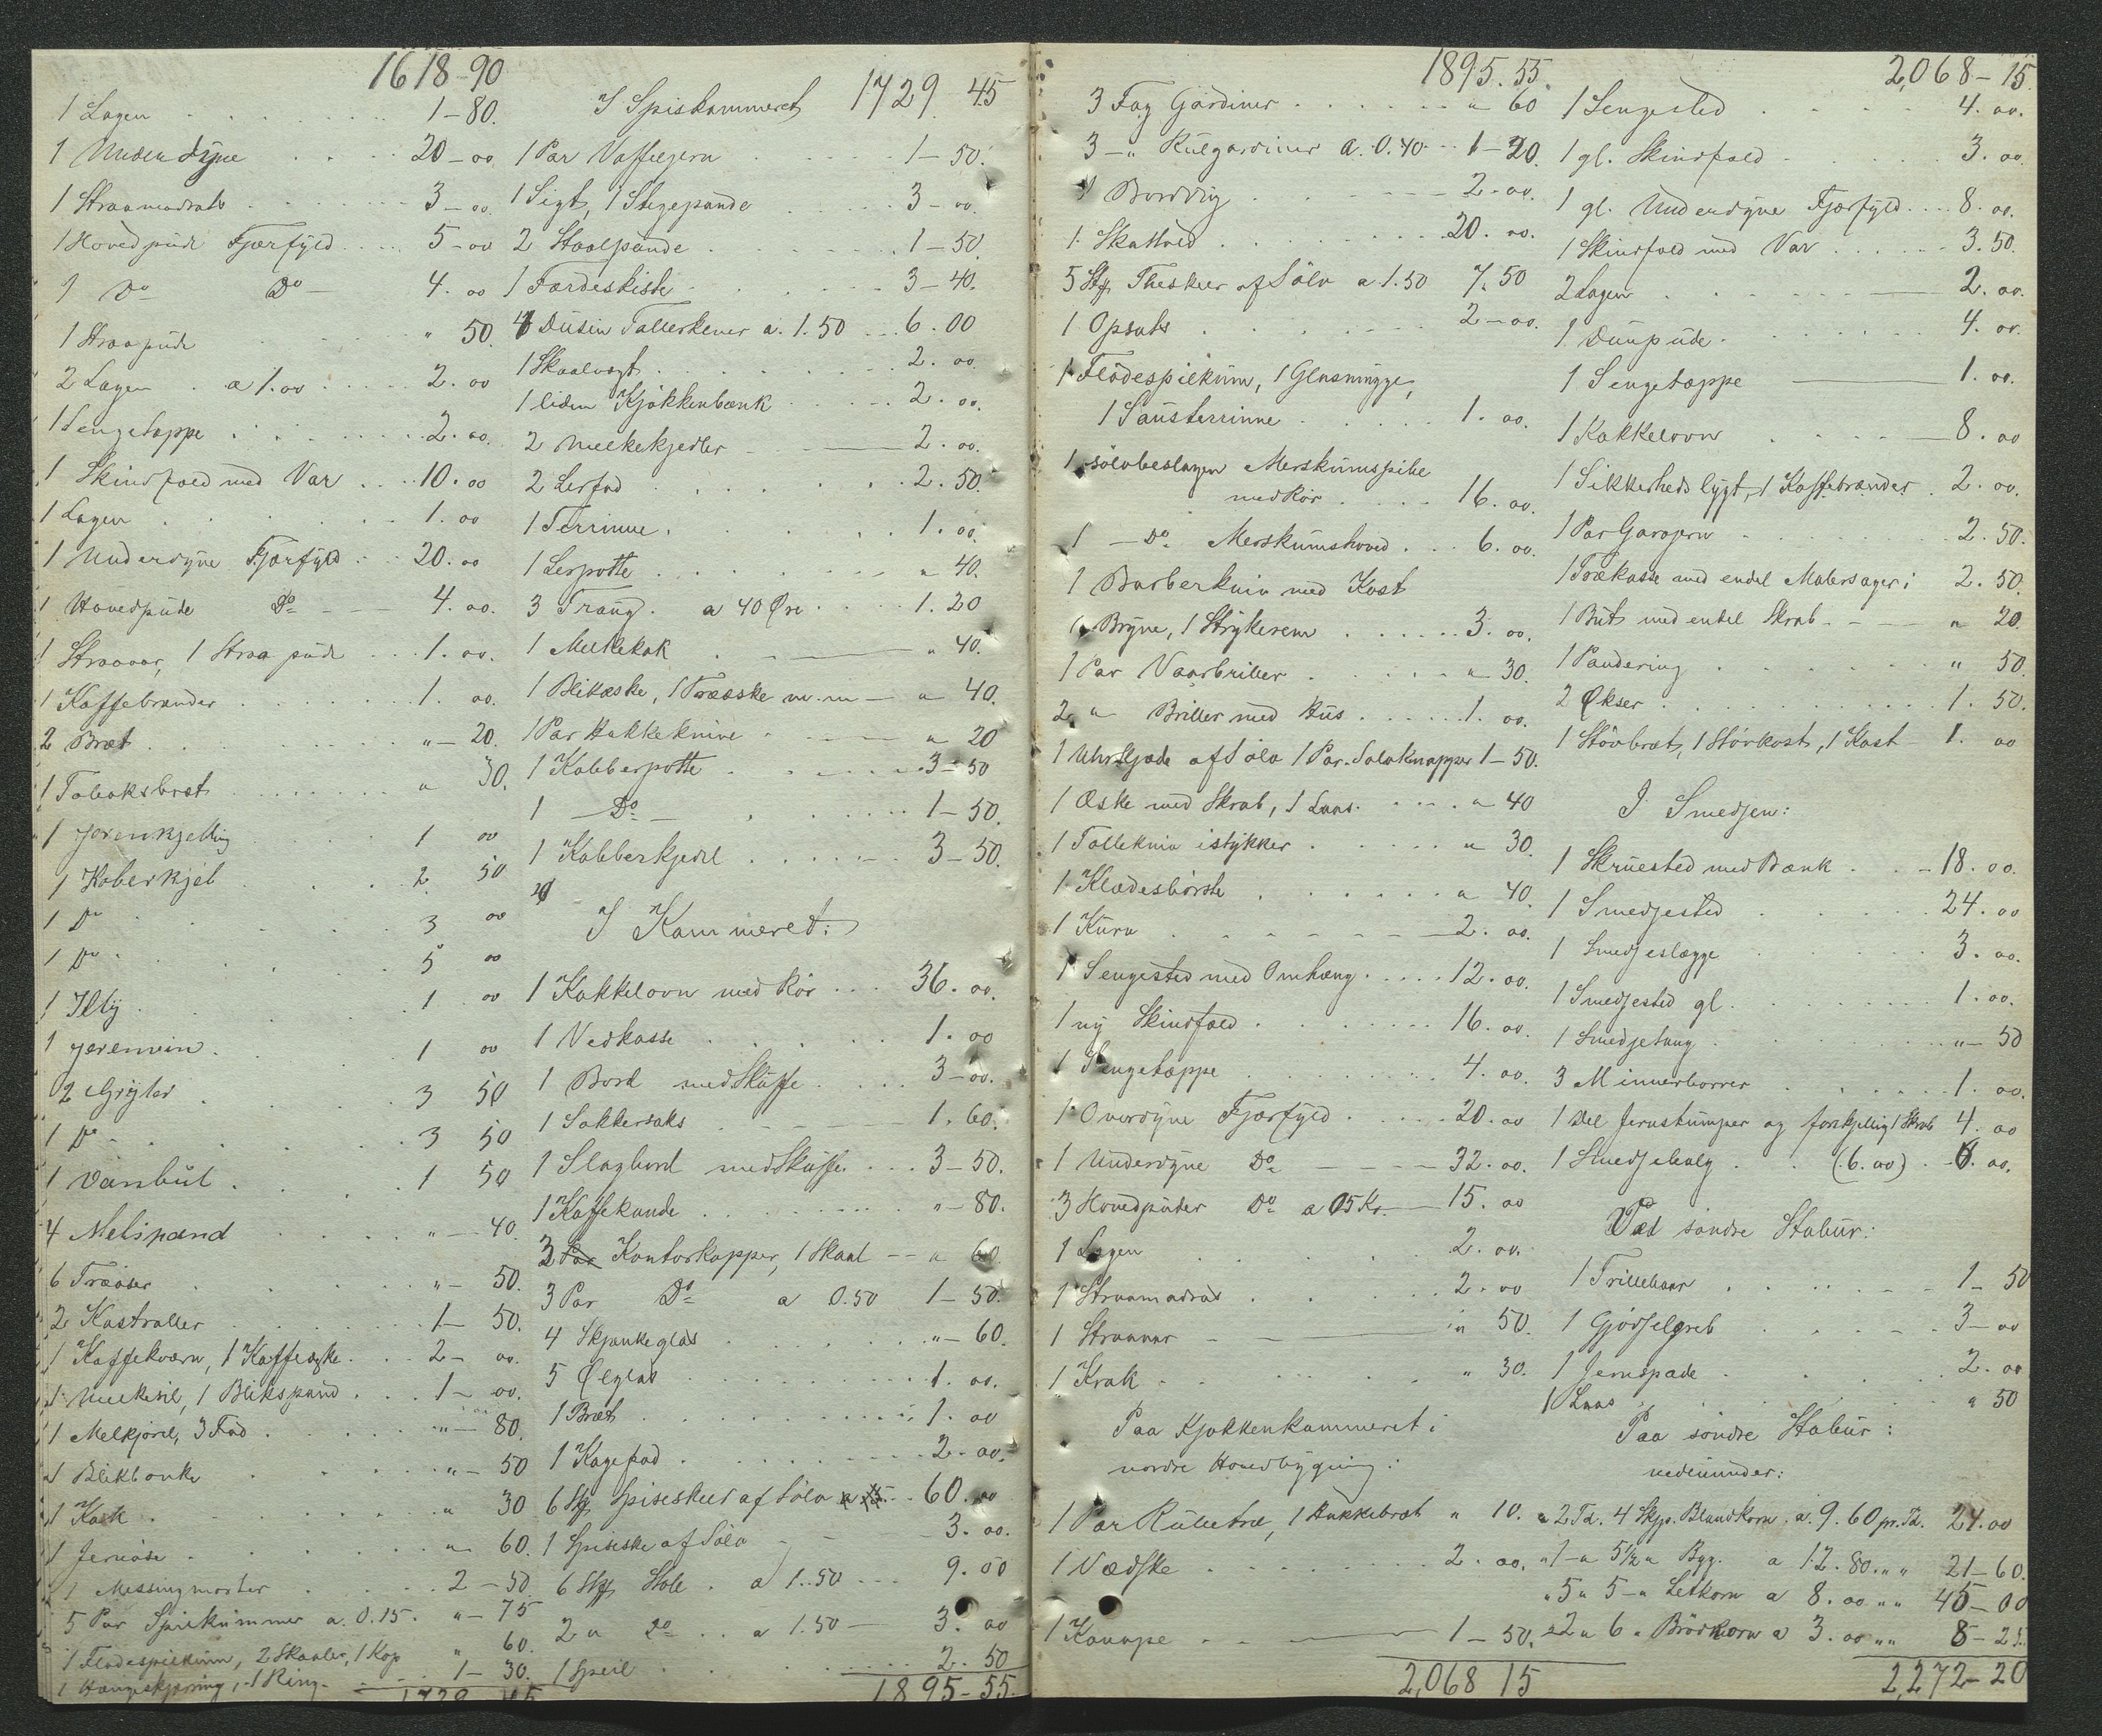 1618-90
1 Lagen 1-80.
1 Underdyne 20-00
1 Straamadrats 3-00.
1 Hovedpude Fjærfyld 5-00
1 Do Do 4.00
1 Straapude " 50.
2 Lagen a 1.00 2.00
1 Sengetæppe 2.00.
1 Skindfæld med Var 10.00
1 Lagen 1.00
1 Underdyne Fjærfyld 20.00
1 Hovedpude Do 4.00.
1 Straavar, 1 Straapude 1.00.
1 Kaffebrænder 1.00.
2 Bræt "-20.
1 Tobaksbræt " 30.
1 Jerenkjetling 1 00
1 Koberkjel 2 50
1 Do 3 00
1 Do 5 00
1 1 00
1 1 00
2 Gryter 3 50
1 Do 3 50
1 Vanbut 1 50
4 Melspand "-40.
6 Træøser "-50.
2 Kastroller 1-50.
1 Kaffekværn, 1 Kaffeæske 2-00.
1 Melkesil, 1 Blikspand 1-00.
1 Melkjørel, 3 Fad "-80.
1 Blikbonke "-50
1 Kost " 30
1 Jernøse " 60.
1 Messingmorter 2-50.
5 Par Spirkummer a. 0.15. "-75
1 Flødespilkum, 2 Skaaler, 1 Kop " 60.
1 Hængeskjæring, 1 Ring 1-30.
1729 45
I Spiskammeret 1729 45
1 Par Vaffeljern 1-50.
1 Sigt, 1 Stegepande 3-00.
2 Staalpande 1-50.
1 Færdeskiste 3-40.
4 Dusin Tallerkener a. 1.50 6.00
1 Skaalvægt 2.00
1 liden Kjøkkenbænk 2.00.
2 Melkekjedler 2.00.
2 Lerfad 2.50.
1 Terrinne 1.00.
1 Lerpotte " 40.
3 Traug a 40 Øre 1.20
1 Melkekak " 40.
1 Blikæske, 1 Trææske m.m " 40.
1 Par Hakkeknive " 20
1 Kobberpotte 3-50
1 Do 1-50.
1 Kobberkjedel 3-50.
I Kammeret:
1 Kakkelovn med Rör 36.00.
1 Vedkasse 1.00
1 Bord med Skuffe 3-00.
1 Sukkersaks 1.60.
1 Slagbord med Skuffe 3-50.
1 Kaffekande "-80.
3 Par Kontorkopper, 1 Skaal " 60
3 Par Do a 0.50 1-50.
4 Skjænkeglas "-60.
5 Ølglas 1.00.
1 Bræt 1.00
1 Kagefad 2.00.
6 Stk Spiseskeer af Sølv 60.00
1 Spiseske af Sølv 3.00.
6 Stk Stole a 1.50 9.00
2 " Do a 1.50 3.00
1 Speil 2.50
1895-55.
1895.55.
3 Fag Gardiner " 60
3 -" Rulgardiner a. 0.40 1-20.
1 Borddug 2.00.
1 Skatthol 20.00.
5 Stk Theskeer af Sölv a 1.50 7.50
1 Opsats 2-00.
1 Flödespilkum, 1 Glasmugge,
1 Sausterrinne 1.00.
1 sölvbeslagen Merskumspibe
med Rör 16.00.
1 - Do Merskumshoved 6.00.
1 Barberkniv med Kost
1 Bryne, 1 Strykerem 3.00.
1 Par Vaarbriller " 30.
2 " Briller med Hus 1.00.
1 Uhrkjæde af Sölv 1 Par Sølvknapper 1-50.
1 Æske med Skrab, 1 Laas " 40
1 Tollekniv istykker " 30.
1 Klædesbörste " 40.
1 Kurv 2.00.
1 Sengested med Omhæng 12.00.
1 ny Skindfæld 16.00.
1 Sengetæppe 4.00.
1 Overdyne Fjærfyld 20.00
1 Underdyne Do 32.00.
3 Hovedputer Do a 5 Kr. 15.00
1 Lagen 2.00.
1 Straamadras 2.00
1 Straavar " 50.
1 Krak " 30.
Paa Kjøkkenkammeret i
nordre Hovedbygning:
1 Par Rulletræ, 1 Hakkebræt " 10.
1 Vædske 2.00.
1 Kaappe 1-50.
2,068 15
2,068-15.
1 Sengested 4.00.
1 gl. Skindfæld 3.00.
1 gl. Underdyne Fjærfyld 8.00.
1 Skindfæld med Var 3.50.
2 Lagen 2.00.
1 Dunpude 4.00.
1 Sengetæppe 1.00.
1 Kakkelovn 8.00
1 Sikkerhedslygt, 1 Kaffebrænder 2.00.
1 Par Garojern 2.50.
1 Trækasse med endel Malersager i 2.50.
1 But med endel Skrab " 20.
1 Pandering " 50.
2 Økser 1.50.
1 Stövbræt, 1 Stövkost, 1 Kost 1.00
I Smedjen:
1 Skruested med Bænk 18.00.
1 Smedjested 24.00
1 Smedjeslægge 3.00.
1 Smedjested gl. 1.00.
1 Smedjetang "-50
3 Minnerborrer 1.00.
1 Del Jernstumper og forskjelligt Skrab 4.00
1 Smedjebælg (6.00) 6.00.
Ved söndre Stabur:
1 Trillebaar 1-50
1 Gjödselgreb 3-00
1 Jernspade 2.00
1 Laas " 50
Paa söndre Stabur:
nedenunder:
2 Td. 4 Skjp. Blandkorn a. 9.60 pr. Td. 24.00
" 1 - " 5½ " Byg. a 12.80 " " 21-60.
" 5 " 5 - " Letkorn a 8.00 " " 45-00
2 " 6 " Brödkorn a 3.00 " " 8-25.
2,272-20